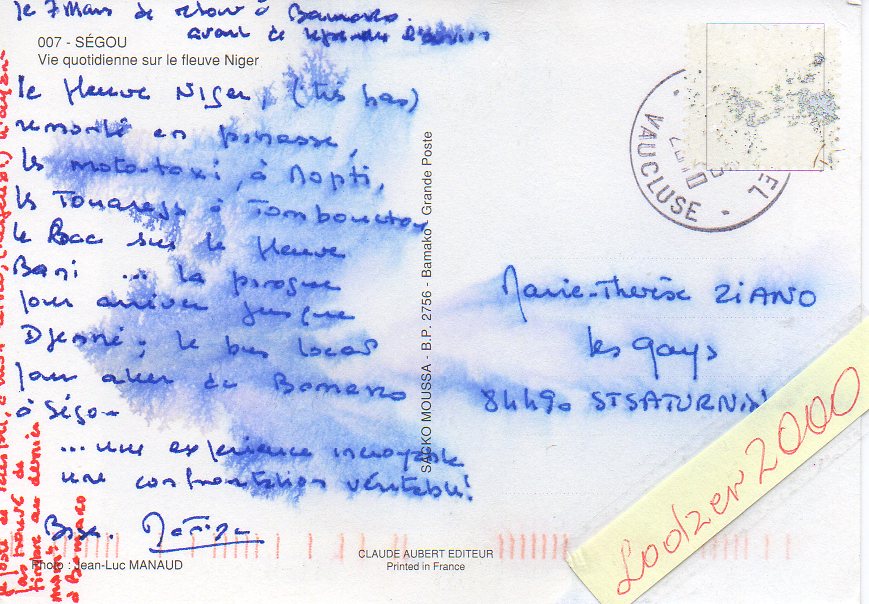 le 7 Mars de retour à Bamako.
avant de reprendre l'avion
007 - SÉGOU
Vie quotidienne sur le fleuve Niger
le fleuve Niger, (très bas)
remonté en pinasse,
les moto-taxi, à Mopti,
les Touaregs à Tombouctou
le Bac sur le fleuve
Bani ... la pirogue
pour arriver jusque
Djenné ; le bus local
pour aller de Bamako
à Ségou
... une expérience incroyable
une confrontation véritable !
Bises.
Photo : Jean-Luc MANAUD
SACKO MOUSSA - B.P. 2756 - Bamako - Grande Poste
CLAUDE AUBERT EDITEUR
Printed in France
VAUCLUSE
Marie-Therèse ZIANO
les Gays
84490 ST SATURNIN
Lodzer2000
je poste de
pas trouvé de
timbre au dernier
à Bamako